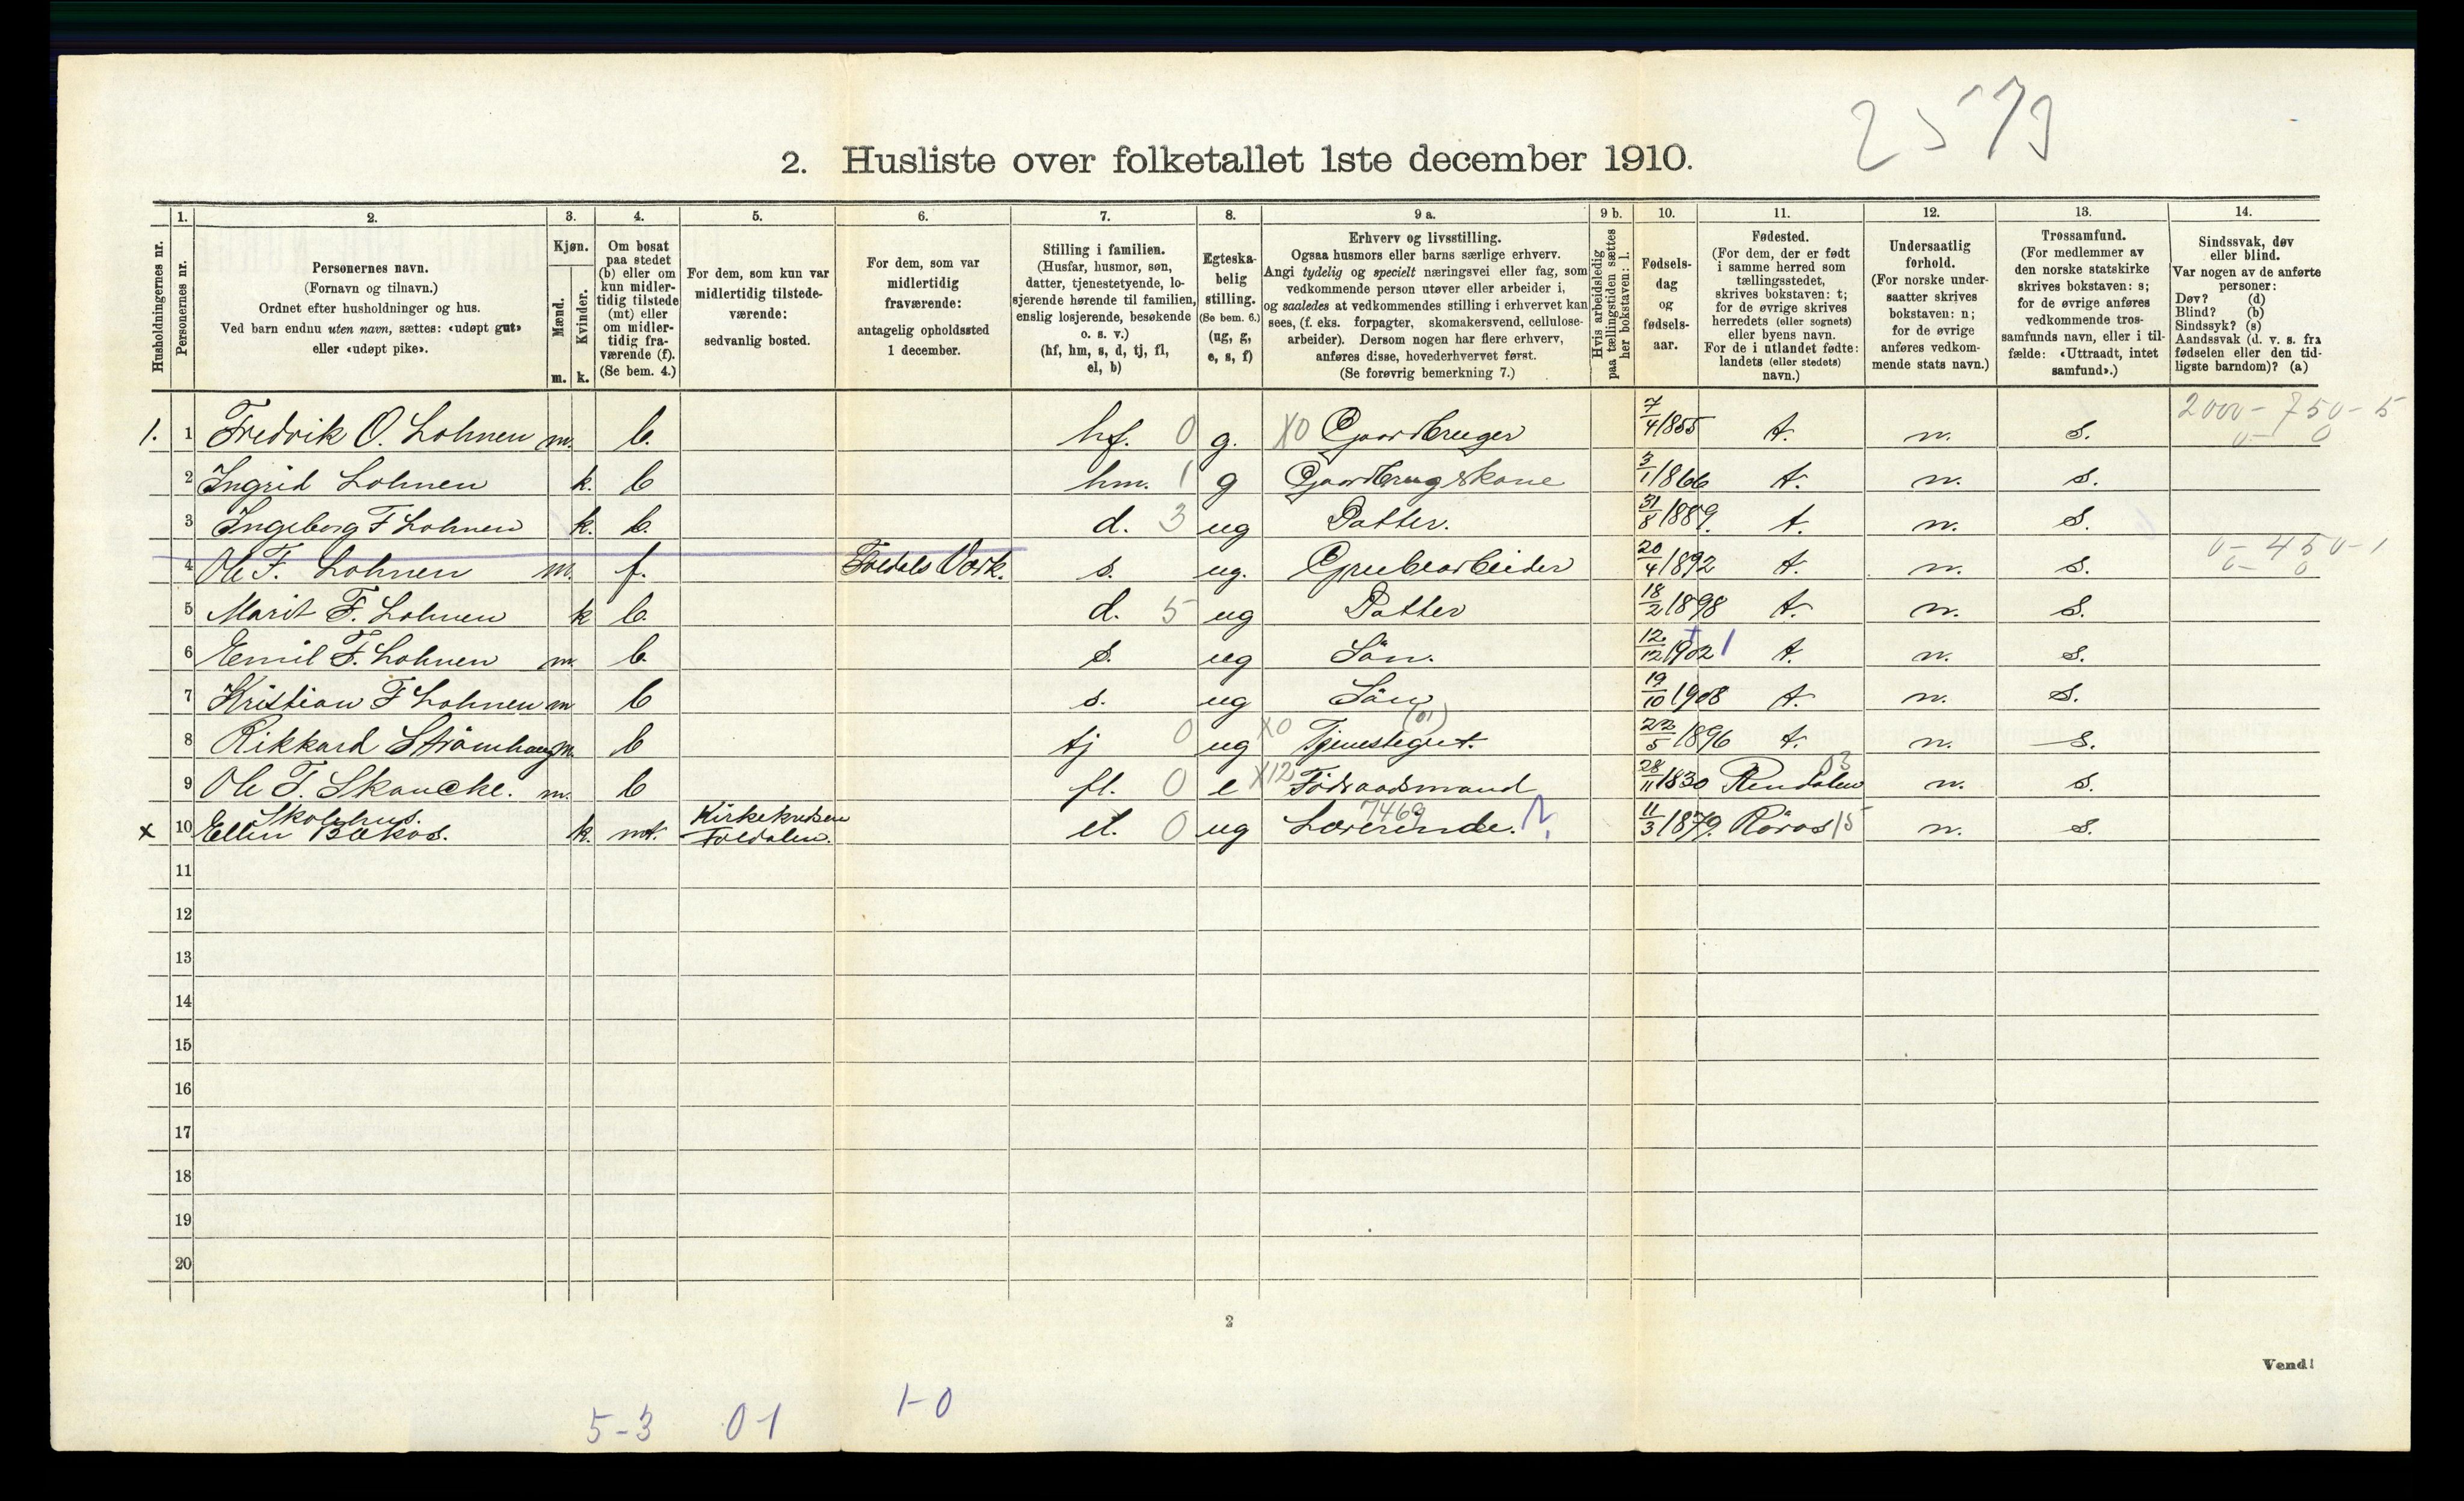 2579
2. Husliste over folketallet 1ste december 1910.
1. 2. 3. 4. 5. 6. 7. 8. 9 a. 9 b. 10. 11. 12. 13. 14.
Husholdningernes nr.
Personernes nr.
Personernes navn.
(Fornavn og tilnavn.)
Ordnet efter husholdninger og hus.
Ved barn endnu uten navn, sættes: «udøpt gut»
eller «udøpt pike».
Kjøn.
Mænd.
Kvinder.
m. k.
Om bosat
paa stedet
(b) eller om
kun midler-
tidig tilstede
(mt) eller
om midler-
tidig fra-
værende (f).
(Se bem. 4.)
For dem, som kun var
midlertidig tilstede-
værende:
sedvanlig bosted.
For dem, som var
midlertidig
fraværende:
antagelig opholdssted
1 december.
Stilling i familien.
(Husfar, husmor, søn,
datter, tjenestetyende, lo-
sjerende hørende til familien,
enslig losjerende, besøkende
o. s. v.)
(hf, hm, s, d, tj, fl,
el, b)
Egteska-
belig
stilling.
(Se bem. 6.)
(ug, g,
e, s, f)
Erhverv og livsstilling.
Ogsaa husmors eller barns særlige erhverv.
Angi tydelig og specielt næringsvei eller fag, som
vedkommende person utøver eller arbeider i,
og saaledes at vedkommendes stilling i erhvervet kan
sees, (f. eks. forpagter, skomakersvend, cellulose-
arbeider). Dersom nogen har flere erhverv,
anføres disse, hovederhvervet først.
(Se forøvrig bemerkning 7.)
Hvis arbeidsledig
paa tællingstiden sættes
her bokstaven: l.
Fødsels-
dag
og
fødsels-
aar.
Fødested.
(For dem, der er født
i samme herred som
tællingsstedet,
skrives bokstaven: t;
for de øvrige skrives
herredets (eller sognets)
eller byens navn.
For de i utlandet fødte:
landets (eller stedets)
navn.)
Undersaatlig
forhold.
(For norske under-
saatter skrives
bokstaven: n;
for de øvrige
anføres vedkom-
mende stats navn.)
Trossamfund.
(For medlemmer av
den norske statskirke
skrives bokstaven: s;
for de øvrige anføres
vedkommende tros-
samfunds navn, eller i til-
fælde: «Uttraadt, intet
samfund».)
Sindssvak, døv
eller blind.
Var nogen av de anførte
personer:
Døv? (d)
Blind? (b)
Sindssyk? (s)
Aandssvak (d. v. s. fra
fødselen eller den tid-
ligste barndom)? (a)
1. 1 Fredrik O. Lohnen m. b. hf. 0 g. X0 Gaardbruger 7/4 1855 t. n. s. 2000-750-5
0- 0
2 Ingrid Lohnen k. b hm. 1 g Gaardbrugskone 3/1 1866 t. n. s.
3 Ingeborg F Lohnen k. b. d. 3 ug Datter. 31/8 1889. t. n. s.
4 Ole F. Lohnen m. f. Foldals Verk. s. ug. Grubearbeider 20/4 1892 t. n. s. 0-450-1
0- 0
5 Marit F. Lohnen k b. d. 5 ug Datter 18/2 1898 t. n. s.
6 Emil F. Lohnen m. b. s. ug Sön. 12/12 1902 1 t. n. s.
7 Kristian F Lohnen m b s. ug Sön 19/10 1908 t. n. s.
8 Rikkard Strömhaug m. b tj 0 ug X0 Tjenestegut. (01) 22/5 1896 t. n. s.
9 Ole T. Skancke. m. b fl. 0 e X12 Föderaadsmand 28/11 1830 Rendalen 03 n. s.
Skolehus. Kirkekredsen 7469
x 10 Ellin Bækos. k. mt. Foldalen. el. 0 ug Lærerinde. 11/3 1879. Röros 15 n. s.
11
12
13
14
15
16
17
18
19
20
2
Vend!
5-3 0-1 1-0